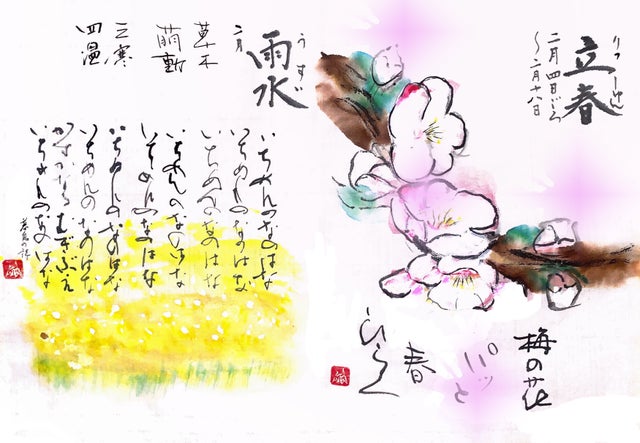 りっしゅん
立春
二月四日ごろ
～二月十八日
梅の花
パッと
春
ひらく
うすい
雨水
二月
草木
萌動
三寒
四温
いちめんのなのはな
いちめんのなのはな
いちめんのなのはな
いちめんのなのはな
いちめんのなのはな
いちめんのなのはな
いちめんのなのはな
かすかなるむぎぶえ
いちめんのなのはな
暮鳥の詩